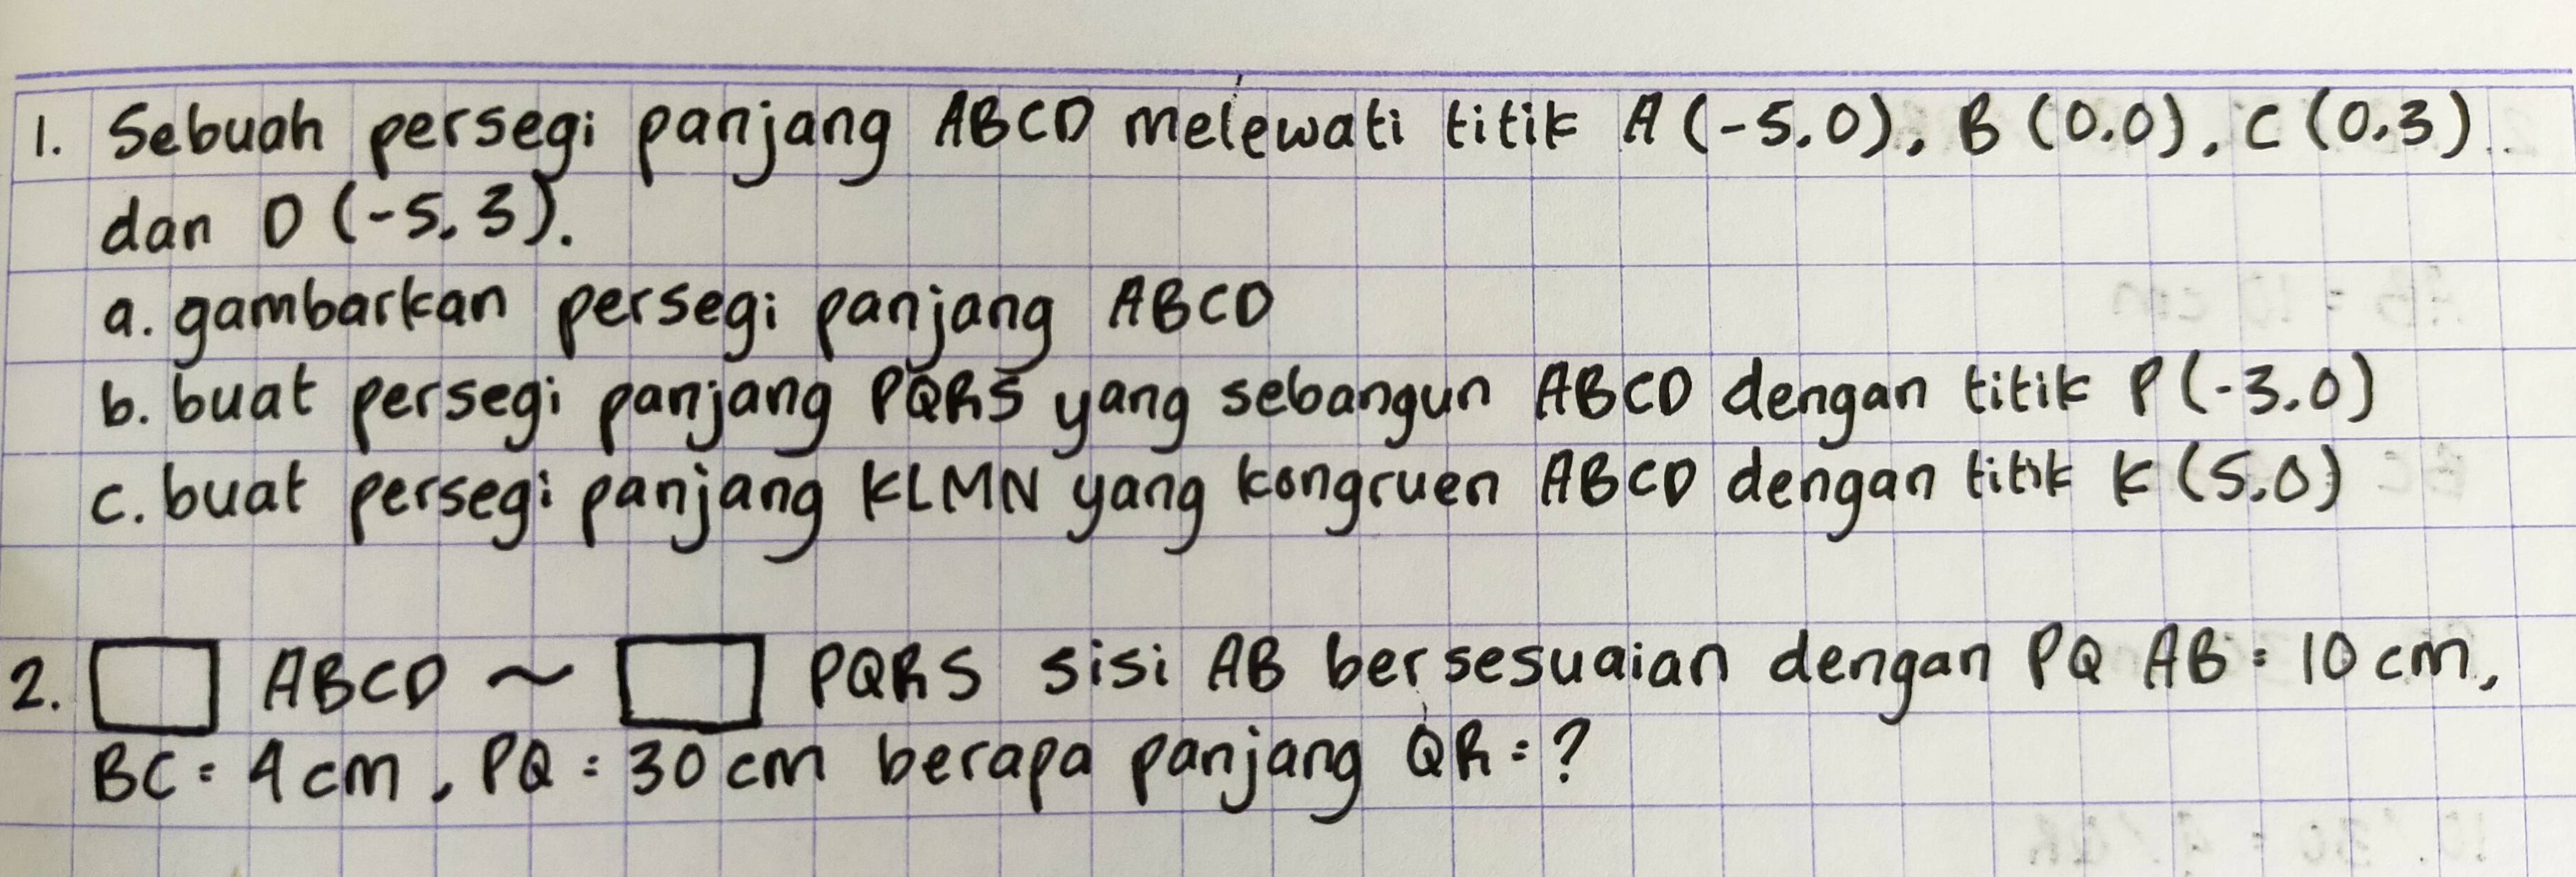 1. Sebuah persegi panjang ABCD melewati titik A (-5.0), B (0.0), C (0.3)
dan D (-5.3).
a. gambarkan persegi panjang ABCD
b. buat persegi panjang PQRS yang sebangun ABCD dengan titik P (-3.0)
c. buat persegi panjang KLMN yang kongruen ABCD dengan titik K (5.0)
2. □ ABCD ~ □ PQRS sisi AB bersesuaian dengan PQ AB = 10 cm,
BC = 4 cm, PQ = 30 cm berapa panjang QR = ?